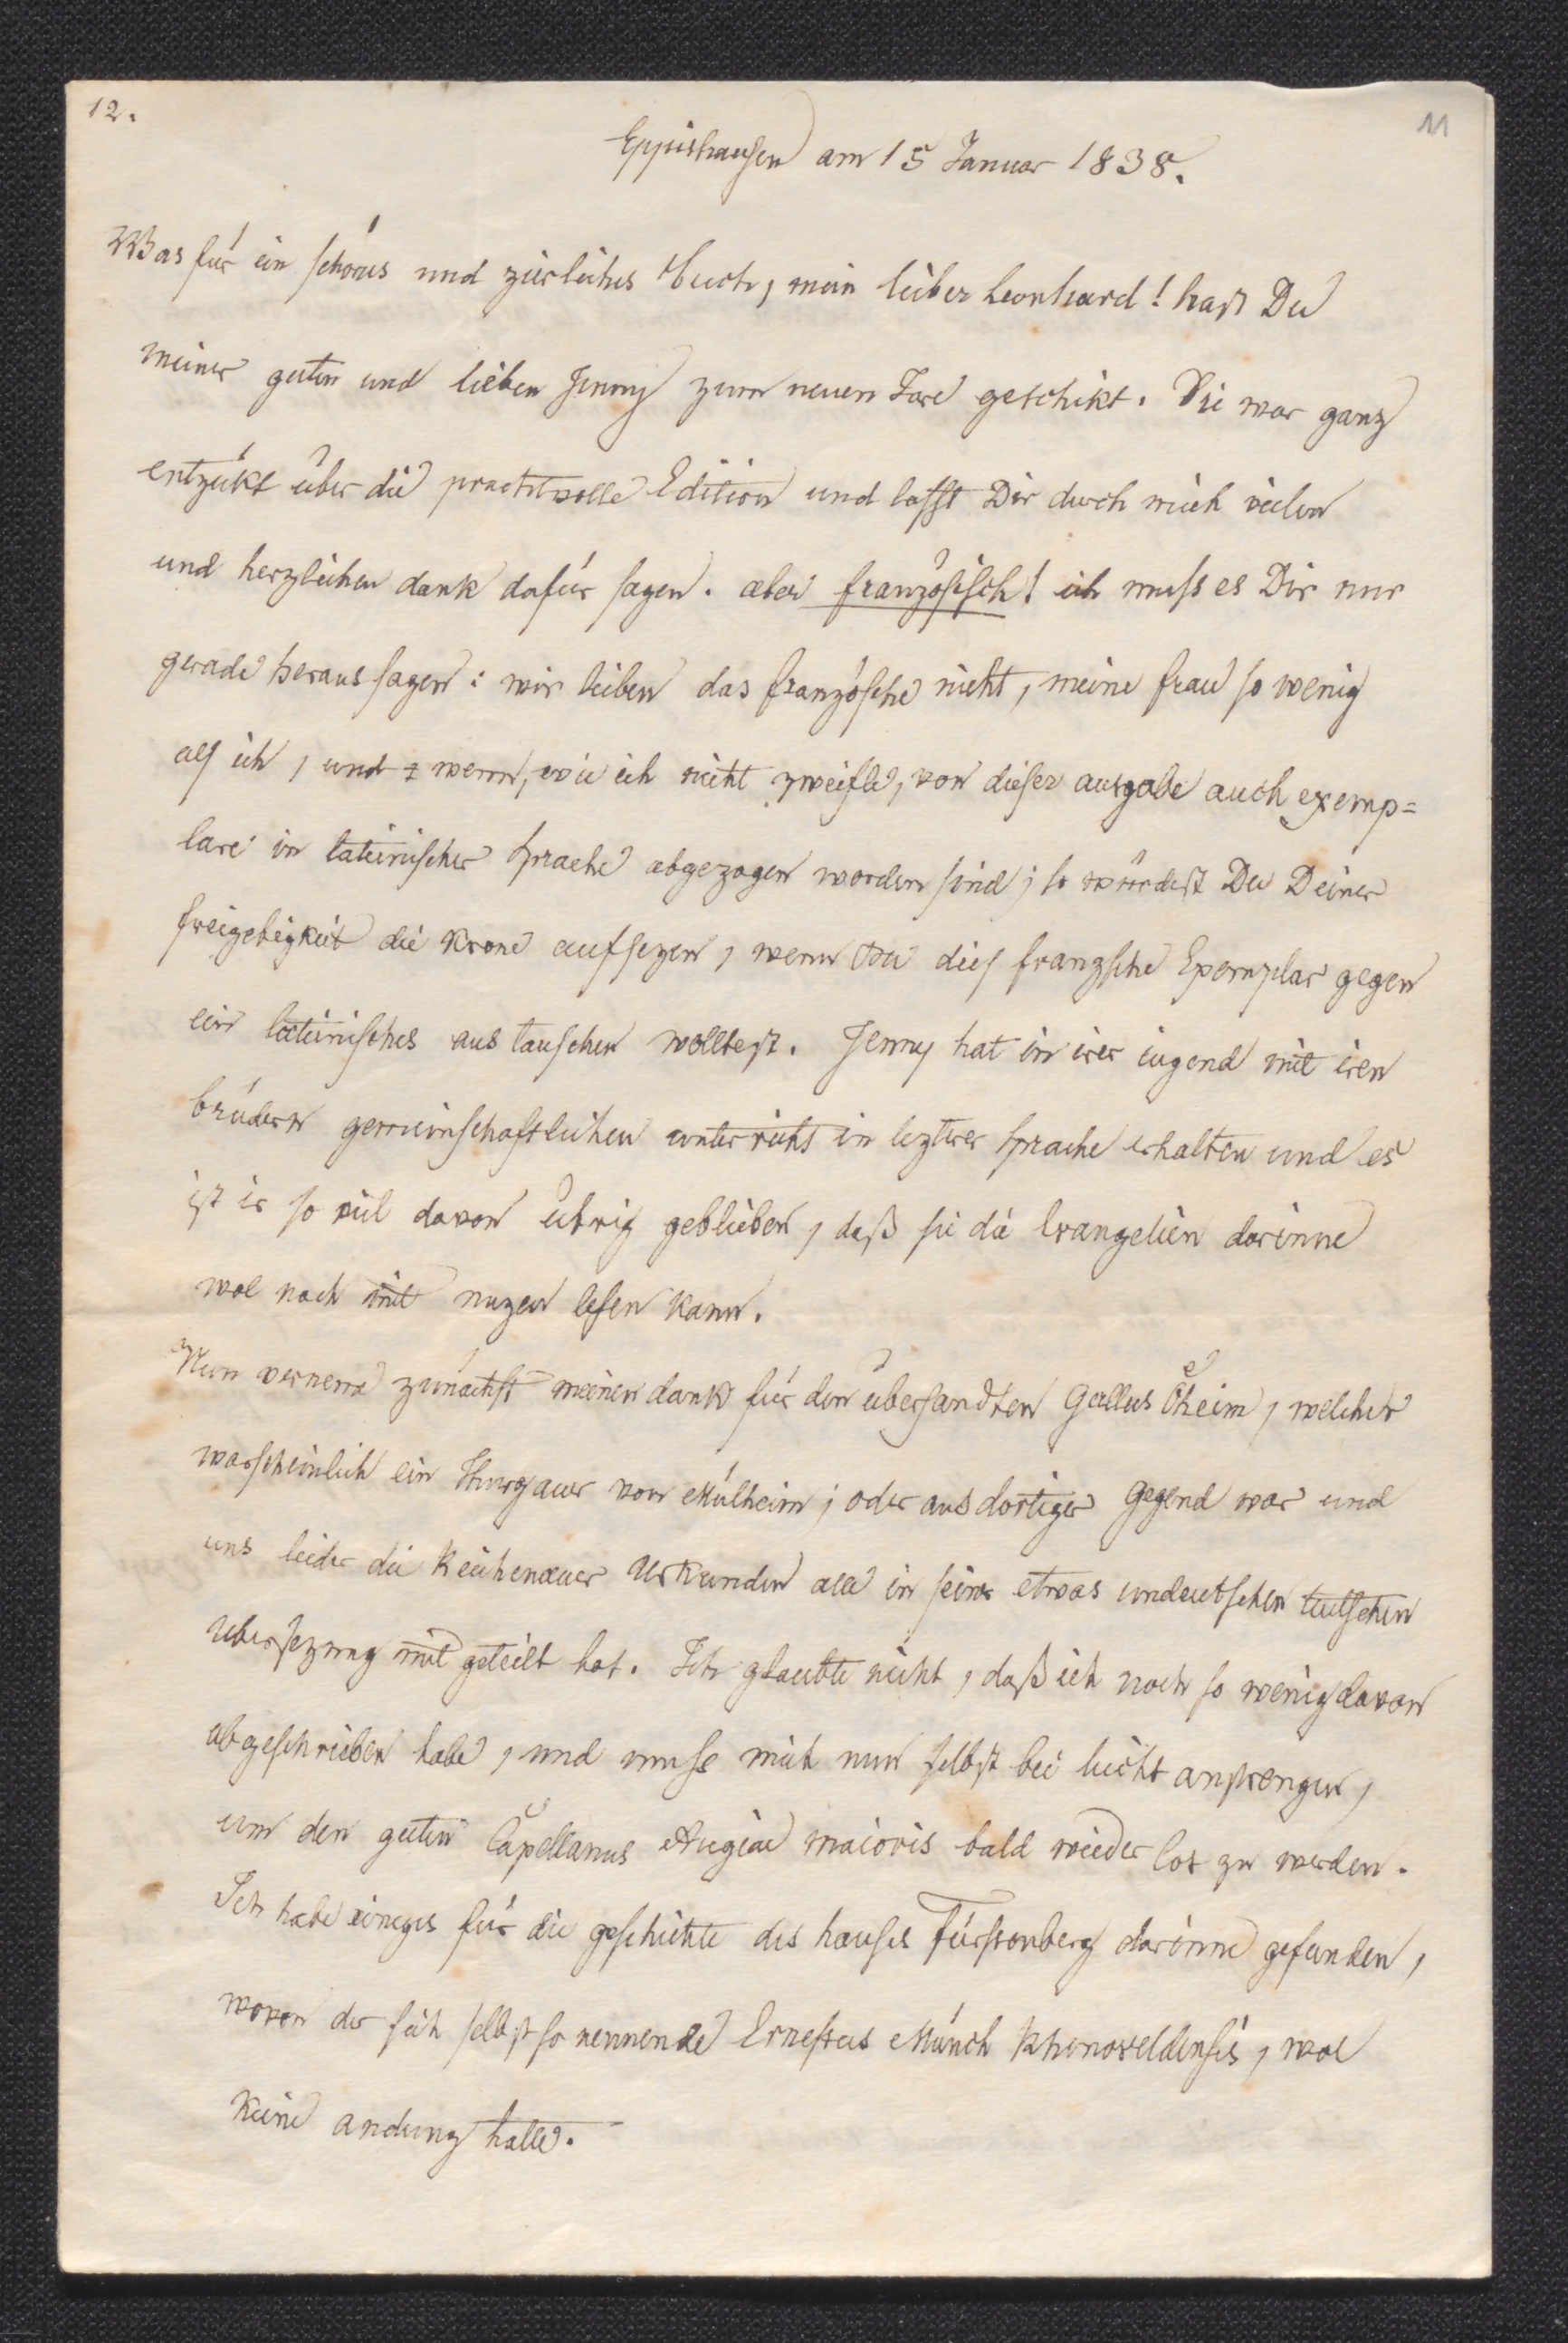 12.
11
Eppishausen am 15 Januar 1838.
Was für ein schönes und zierliches buch, mein lieber Leonhard! hast Du
meiner guten und lieben Jenny zum neuen Jare geschikt. Sie war ganz
entzükt über die prachtvolle Edition und lasst Dir durch mich vielen
und herzlichen dank dafür sagen. aber französisch! ich muss es Dir nur
gerade heraus sagen: wir lieben das französche nicht, meine frau so wenig
als ich, und wenn, wie ich nicht zweifle, von dieser ausgabe auch exemp=
lare in lateinischer sprache abgezogen worden sind; so würdest Du Deiner
freigebigkeit die krone aufsezen, wenn Du dies franzsche Exemplar gegen
ein lateinisches aus tauschen wolltest. Jenny hat in irer iugend mit iren
brüdern gemeinschaftlichen unterricht in lezterer sprache erhalten und es
ist ir so vil davon übrig geblieben, daß sie die Evangelien darinne
wol noch mit nuzen lesen kann.
Nun verneme zunächst meinen dank für den übersandten Gallus Öheim, welcher
warscheinlich ein Thurgauer von Mülheim; oder aus dortiger gegend war und
uns leider die Reichenauer Urkunden alle in seiner etwas undeutschen teutschen
übersezung mit geteilt hat. Ich glaubte nicht, daß ich noch so wenig davon
abgeschrieben habe, und muss mich nun selbst bei licht anstrengen,
um den guten Capellanus Augiae maioris bald wieder los zu werden.
Ich habe einiges für die geschichte des hauses Fürstenberg darinne gefunden,
wovon der sich selbst so nennende Ernestus Münch Rhenoveldensis, wol
keine andung hatte.